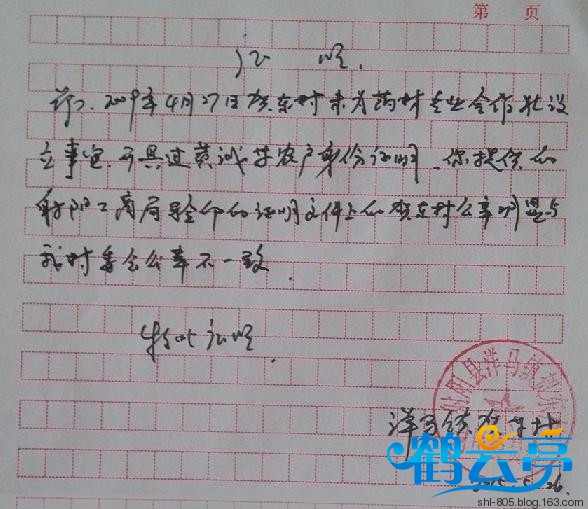 第 页
证 明
兹 2009年4月27日贺东村未为药材专业合作社设
立事宜 开具过黄诚等农户身份证明、你提供的
射阳工商局复印的证明文件上的贺东村公章明显与
我村委会公章不一致.
特此证明
洋马镇贺东村
鹤云亭
5.26
shl-805.blog.163.com/